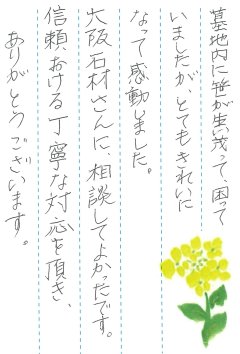 墓地内に笹が生い茂って、困って
いましたが、とてもきれいに
なって感動しました。
大阪石材さんに、相談してよかったです。
信頼おける丁寧な対応を頂き、
ありがとうございます。